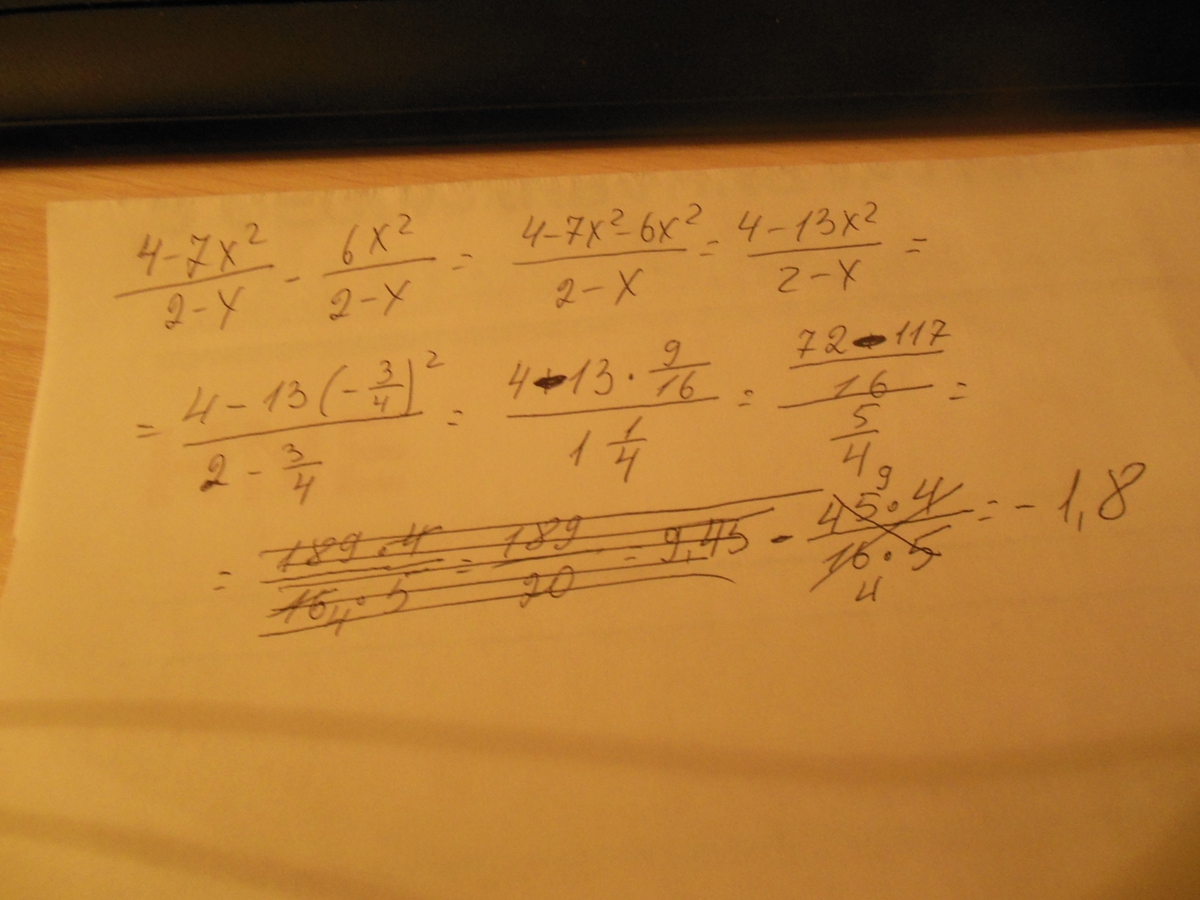 (4-7x²)/(2-x) - 6x²/(2-x) = (4-7x²-6x²)/(2-x) = (4-13x²)/(2-x) =
= (4-13(-3/4)²)/(2-3/4) = (4-13·9/16)/(1 1/4) = ((72-117)/16)/(5/4) =
= (189·4)/(16·5) 4 = 189/20 = 9,45 - (45·4)/(16·5) 9 4 = -1,8